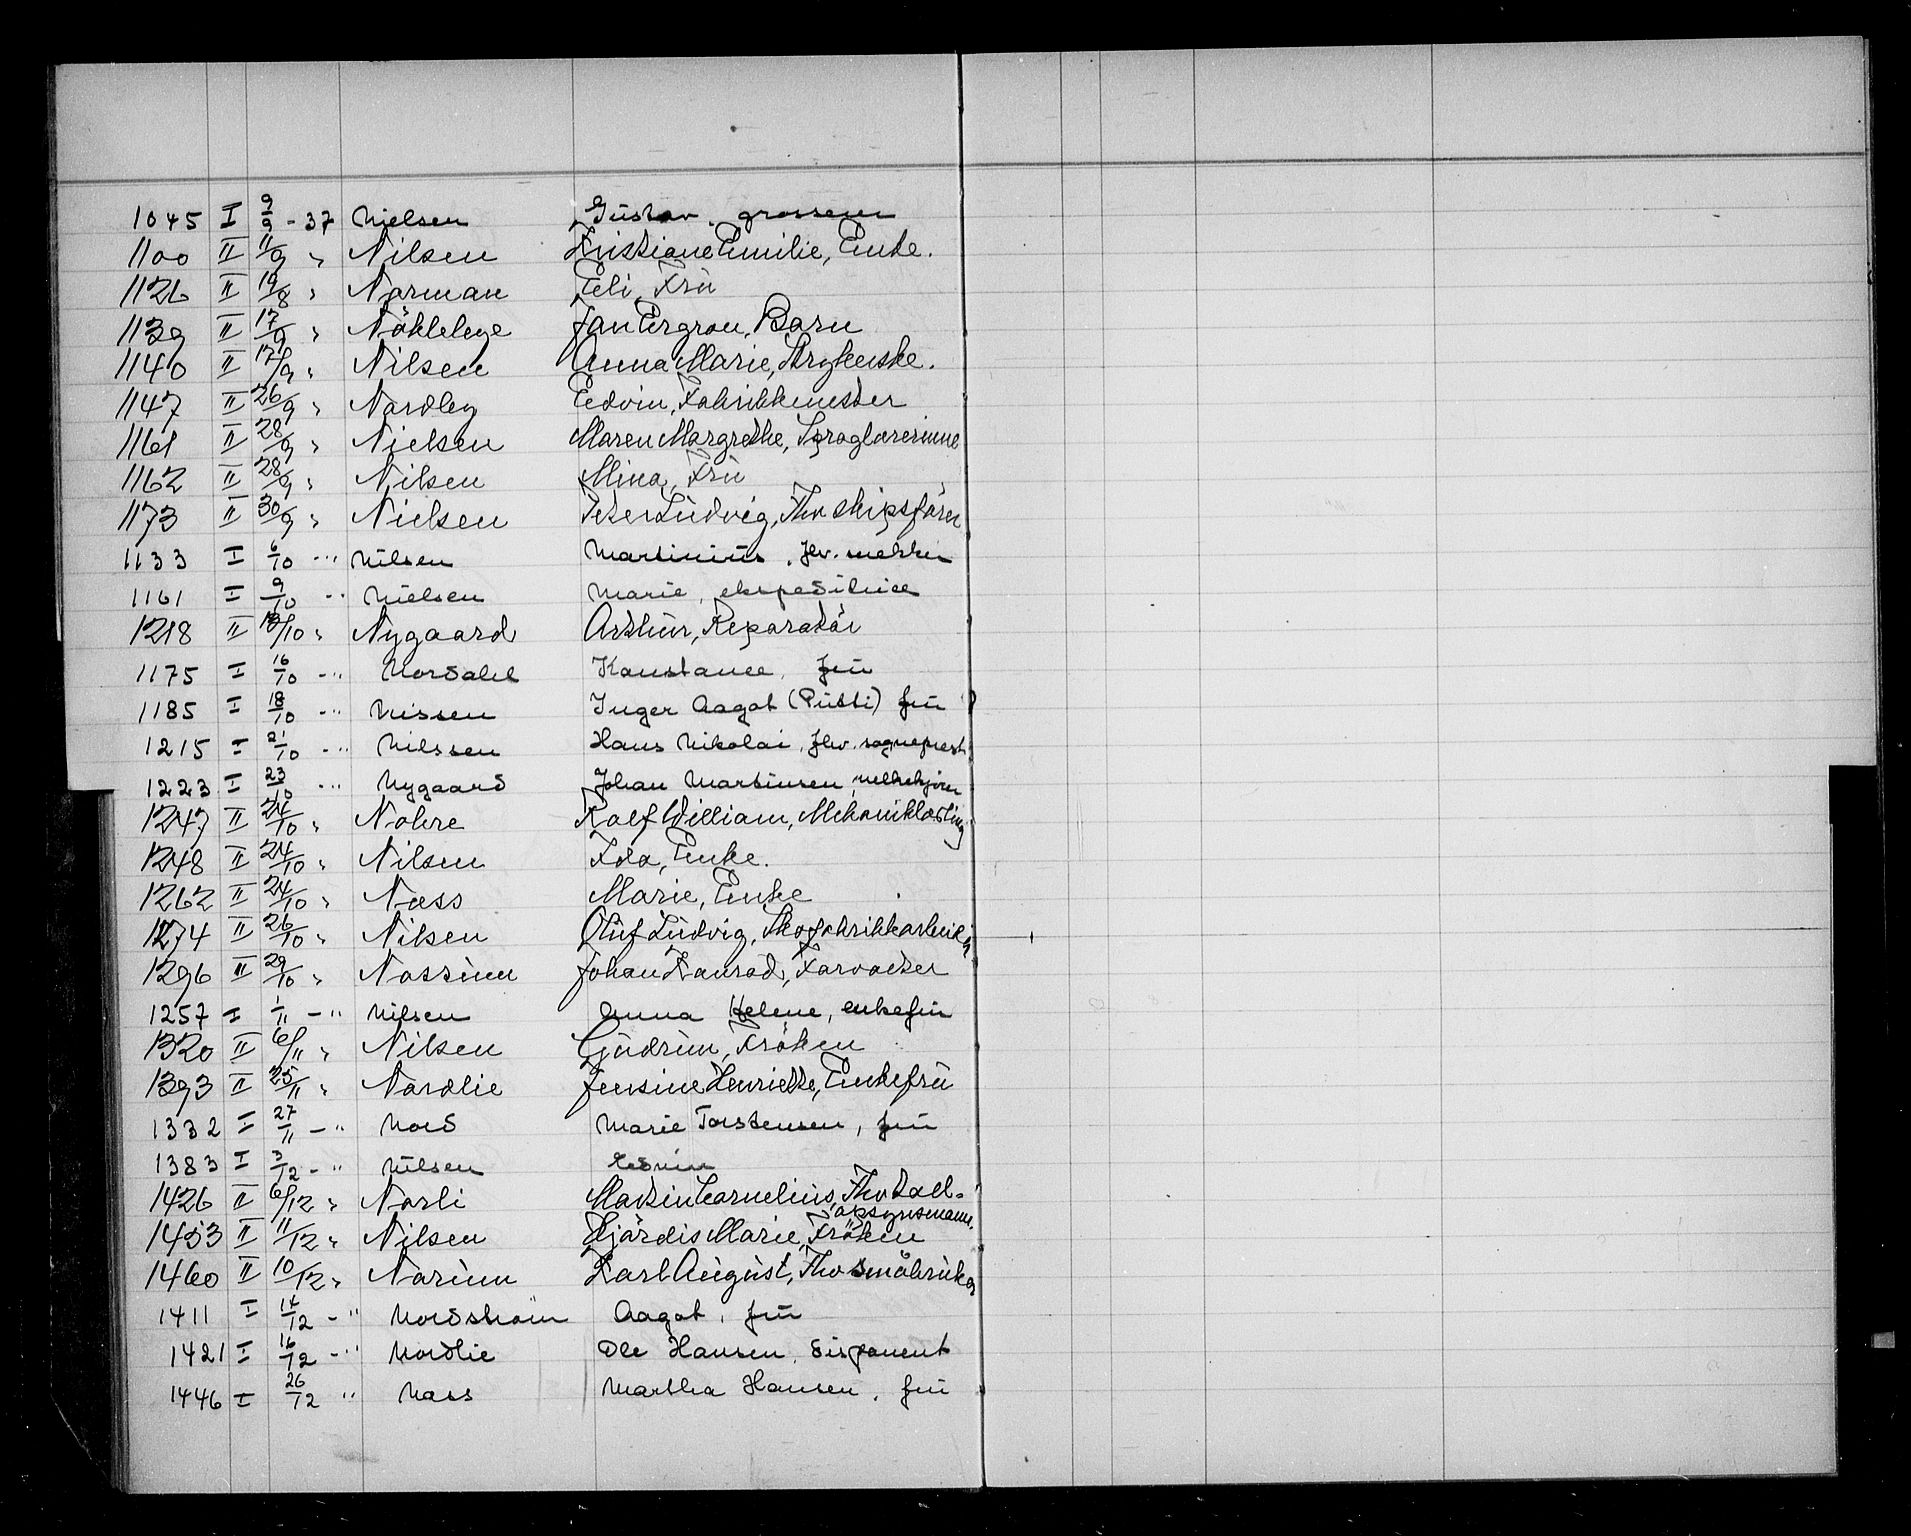 1045 I 9/9 - 37 Nielsen Gustav, grosserer
1100 II 11/9 " Nilsen Kristiane Emilie, Enke.
1126 II 19/8 " Norman Eli, Frü
1139 II 17/9 " Nökleleye Jan Ergron, Barn
1140 II 17/9 " Nilsen Anna Marie, Strykerske.
1147 II 26/9 " Nordby Edvin, Fabrikkmester
1161 II 28/9 " Nielsen Maren Margrethe, Sproglærerinne
1162 II 28/9 " Nilsen Mina, Frü
1173 II 30/9 " Nielsen Peter Lüdvig, Fhv skipsförer
1133 I 6/10 - " Nilsen Martinius, fhv. mekler
1161 I 9/10 - " Nielsen Marie, ekspeditrice
1218 II 10/10 " Nygaard Arthür, Reparatör
1175 I 16/10 - " Nordahl Konstance, frü
1185 I 18/10 - " Nissen Inger Aagot (Pütti) frü
1215 I 21/10 - " Nilssen Hans Nikolai, fhv. sogneprest
1223 I 23/10 - " Nygaard Johan Martinsen, melkekjörer
1247 II 24/10 " Nohre Rolf William, Mekaniklærling
1248 II 24/10 " Nilsen Ida, Enke.
1262 II 24/10 " Næss Marie, Enke
1274 II 26/10 " Nilsen Olüf Lüdvig, Skofabrikkarbeider
1296 II 29/10 " Nossüm Johan Konrad, Forvalter
1257 I 1/11 - " Nilsen Anna Helene, enkefrü
1320 II 6/11 " Nilsen Güdrün, Fröken
1393 II 25/11 " Nordlie Jensine Henriette, Enkefrü
1332 I 27/11 - " Nord Marie Torstensen, frü
1383 I 3/12 - " Nilsen Edvin
1426 II 6/12 " Norli Martin Cornelius, Fhv toll-
opsynsmann.
1453 II 11/12 " Nilsen Hjördis Marie, Fröken
1460 II 10/12 " Norüm Karl Aügüst, Fhv småbrüker
1411 I 14/12 - " Nordström Aagot, frü
1421 I 16/12 - " Nordlie Ole Hansen, disponent
1446 I 26/12 " Næss Martha Hansen, frü